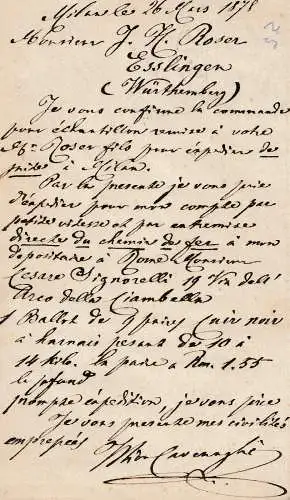 Milan les 26 Mars 1878
Monsieur J. H. Roser
Esslingen
(Würthemberg)
Je vous confirme la commande
pour échantillon remise à votre
Sr. Roser fils pour expédier de
suite à Milan.
Par la presente je vous prie
d'expédier pour mon compte par
petite vitesse et par entremise
directe du chemin de fer à mon
depositaire à Rome Monsieur
Cesare Signorelli 19 Via dell'
Arco della Ciambella
1 Ballot de 9 paires Cuir noir
à harnais pesant de 10 à
14 kilo. la paire a Rm. 1.55
le
prompte expédition, je vous prie
Je vous presente mes civilités
empressés
Cavenaghi